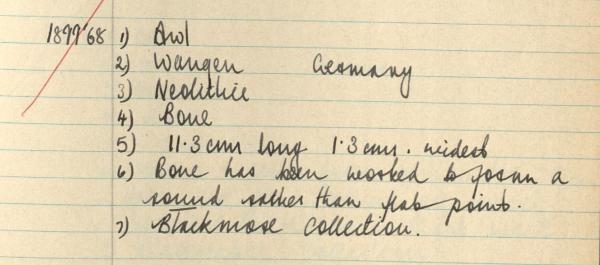 1899'68 1) Awl
2) Wangen Germany
3) Neolithic
4) Bone
5) 11.3 cms long 1.3 cms. widest
6) Bone has been worked to form a
round rather than flat point.
7) Blackmore Collection.